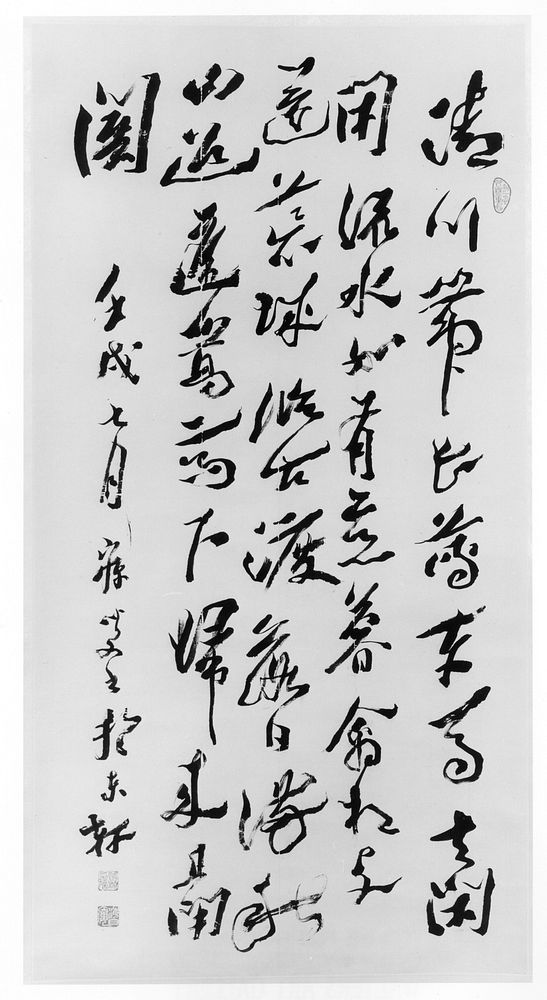 清川帶長薄車馬去閑
閑流水如有意暮禽相與
還荒城臨古渡落日滿秋
山迢遞嵩高下歸來且閉
關
壬戌七月